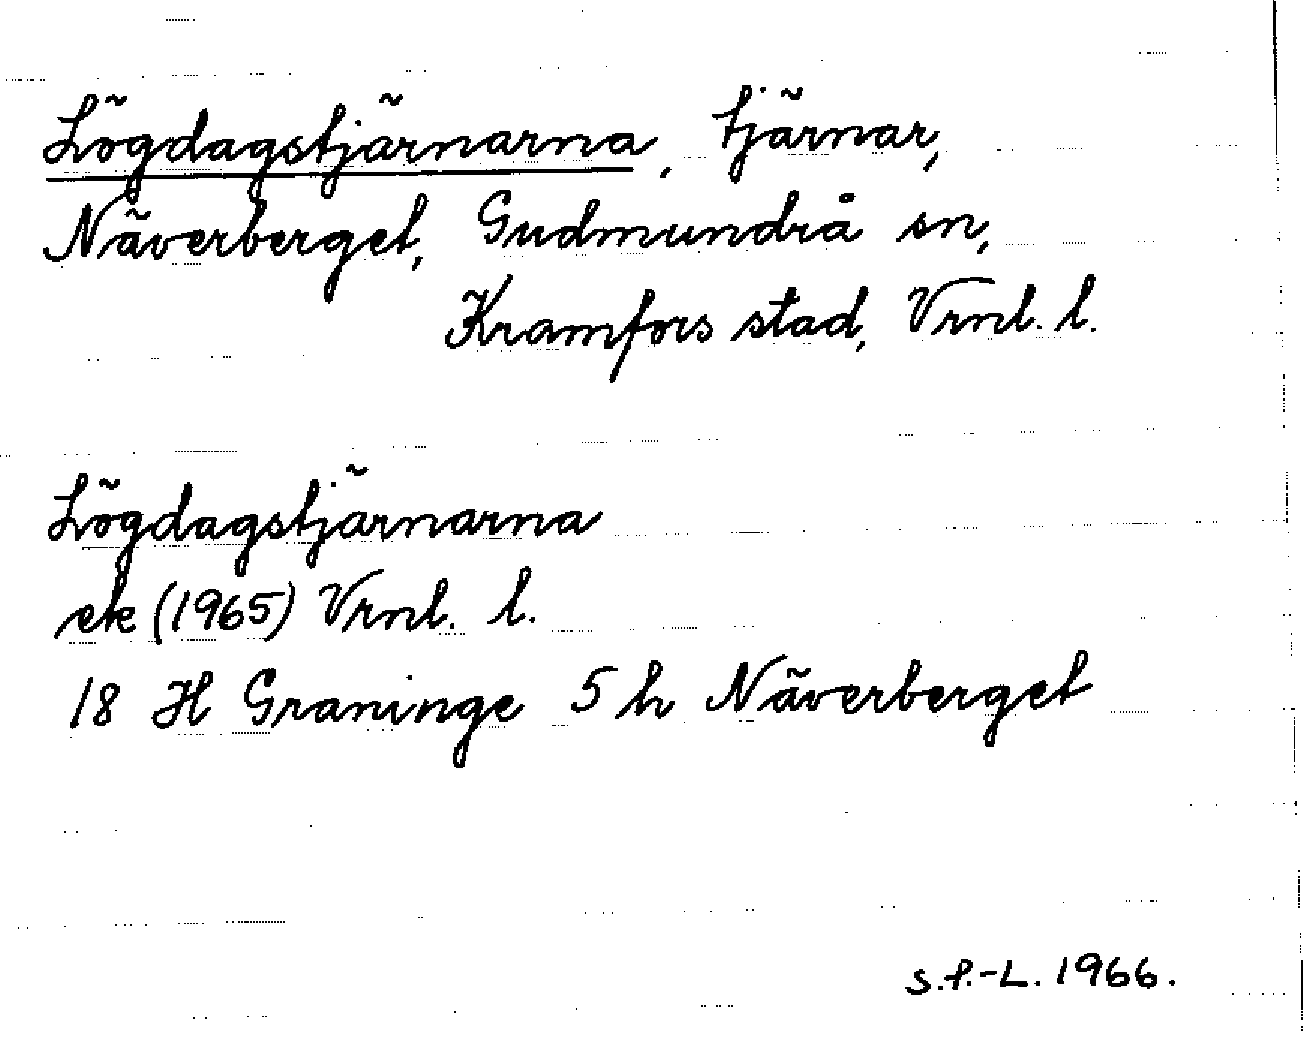 Lögdagstjärnarna, tjärnar,
Näverberget, Gudmundrå sn,
Kramfors stad, Vrnl. l.
Lögdagstjärnarna
ek (1965) Vrnl. l.
18 H Graninge 5 h Näverberget
S.P.-L. 1966.